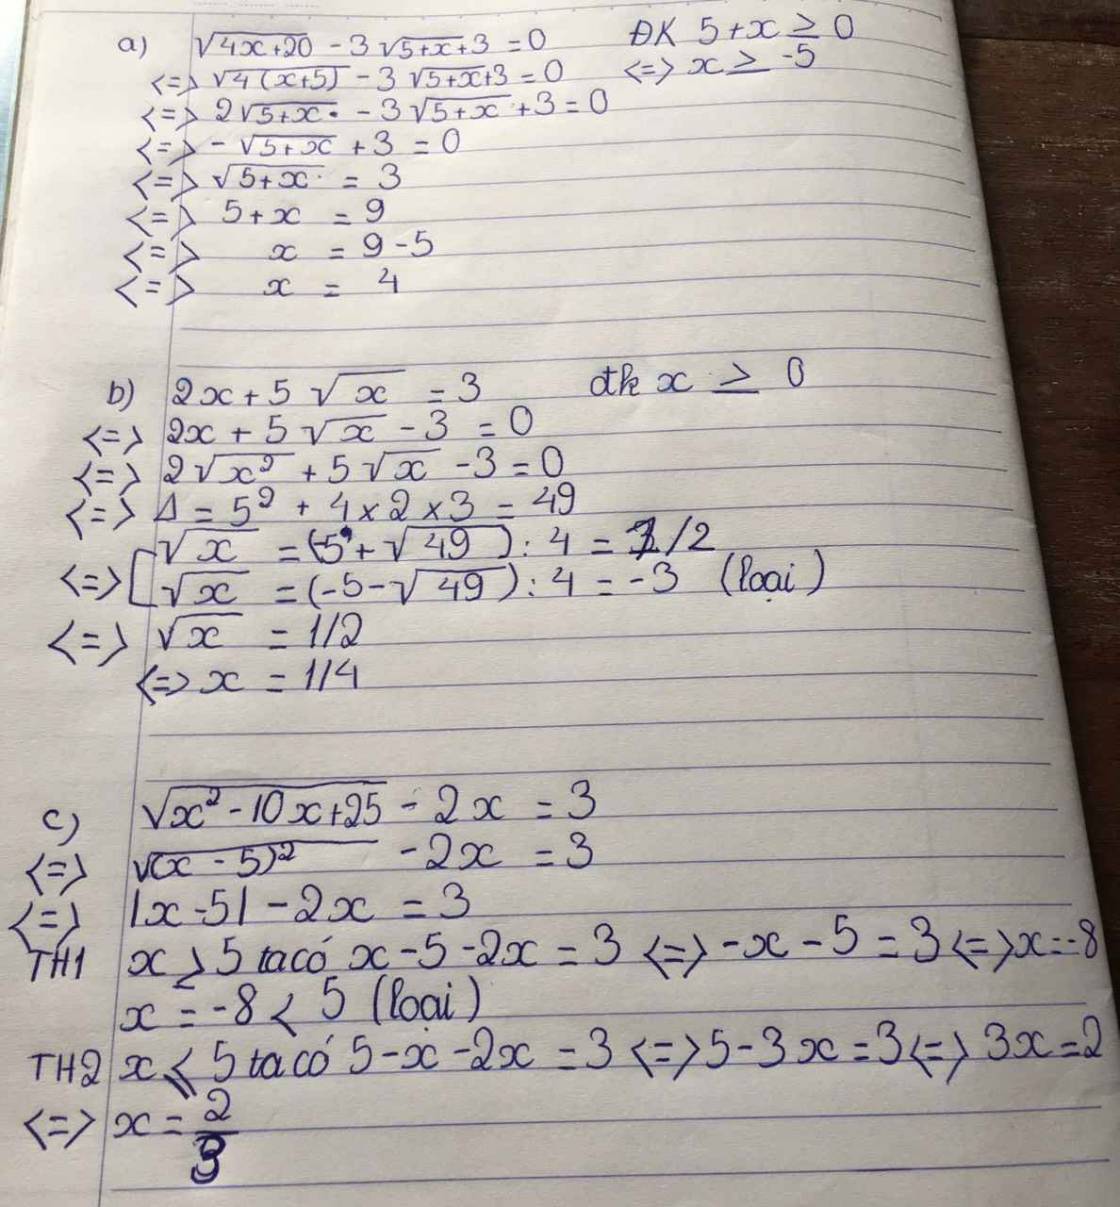 a) √(4x+20) - 3√(5+x) + 3 = 0 ĐK 5+x ≥ 0
<=> √(4(x+5)) - 3√(5+x) + 3 = 0 <=> x ≥ -5
<=> 2√(5+x) - 3√(5+x) + 3 = 0
<=> -√(5+x) + 3 = 0
<=> √(5+x) = 3
<=> 5+x = 9
<=> x = 9-5
<=> x = 4
b) 2x + 5√x = 3 đk x ≥ 0
<=> 2x + 5√x - 3 = 0
<=> 2√x² + 5√x - 3 = 0
<=> Δ = 5² + 4×2×3 = 49
√x = (-5+√49) : 4 = 1/2
<=> [ √x = (-5-√49) : 4 = -3 (loại)
<=> √x = 1/2
<=> x = 1/4
c) √(x²-10x+25) - 2x = 3
<=> √((x-5)²) - 2x = 3
<=> |x-5| - 2x = 3
TH1 x ≥ 5 ta có x-5-2x = 3 <=> -x-5 = 3 <=> x=-8
x = -8 < 5 (loại)
TH2 x ⩽ 5 ta có 5-x-2x = 3 <=> 5-3x = 3 <=> 3x=2
<=> x = 2/3